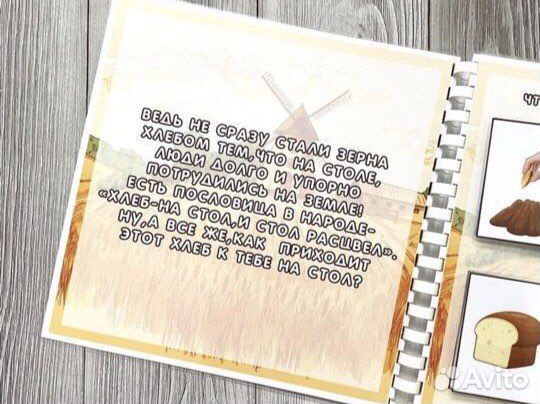 ВЕДЬ НЕ СРАЗУ СТАЛИ ЗЕРНА
ХЛЕБОМ ТЕМ,ЧТО НА СТОЛЕ,
ЛЮДИ ДОЛГО И УПОРНО
ПОТРУДИЛИСЬ НА ЗЕМЛЕ!
ЕСТЬ ПОСЛОВИЦА В НАРОДЕ-
«ХЛЕБ-НА СТОЛ,И СТОЛ РАСЦВЕЛ».
НУ,А ВСЕ ЖЕ,КАК ПРИХОДИТ
ЭТОТ ХЛЕБ К ТЕБЕ НА СТОЛ?
ЧТ
Avito